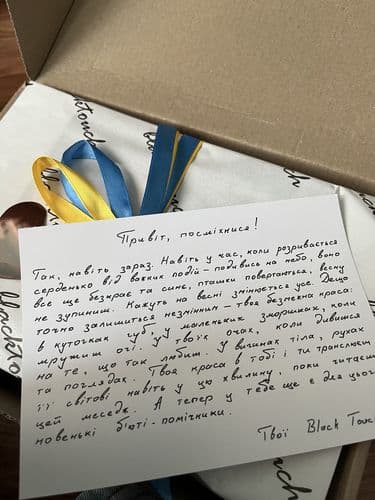 blacktouch
Привіт, посміхнися!
Так, навіть зараз. Навіть у час, коли розривається
серденько від важких подій – подивись на небо, воно
все ще безкрає та синє, пташки повертаються, весну
не зупиниш. Кажуть на весні змінюється усе. Дещо
точно залишиться незмінним – твоя безмежна краса:
в куточках губ, у маленьких зморшках, коли
мружиш очі, у твоїх очах, коли дивишся
на те, що так любиш. У вигинах тіла, рухах
та поглядах. Твоя краса в тобі і ти транслюєш
її світові навіть у цю хвилину, поки читаєш
цей меседж. А тепер у тебе ще є для цього
новенькі б'юті-помічники.
Твої Black Touc